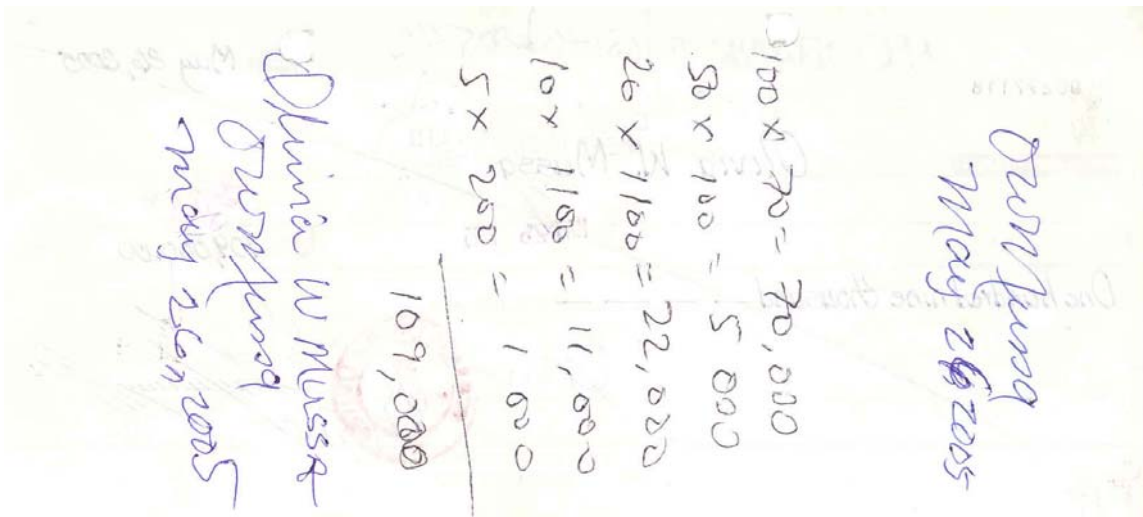 OWMussa
May 26 2005
100 x 70 = 70,000
50 x 100 = 5 000
20 x 1100 = 22,000
10 x 1100 = 11,000
5 x 200 = 1 000
109,000
Olivia W Mussa
OWMussa
May 26, 2005